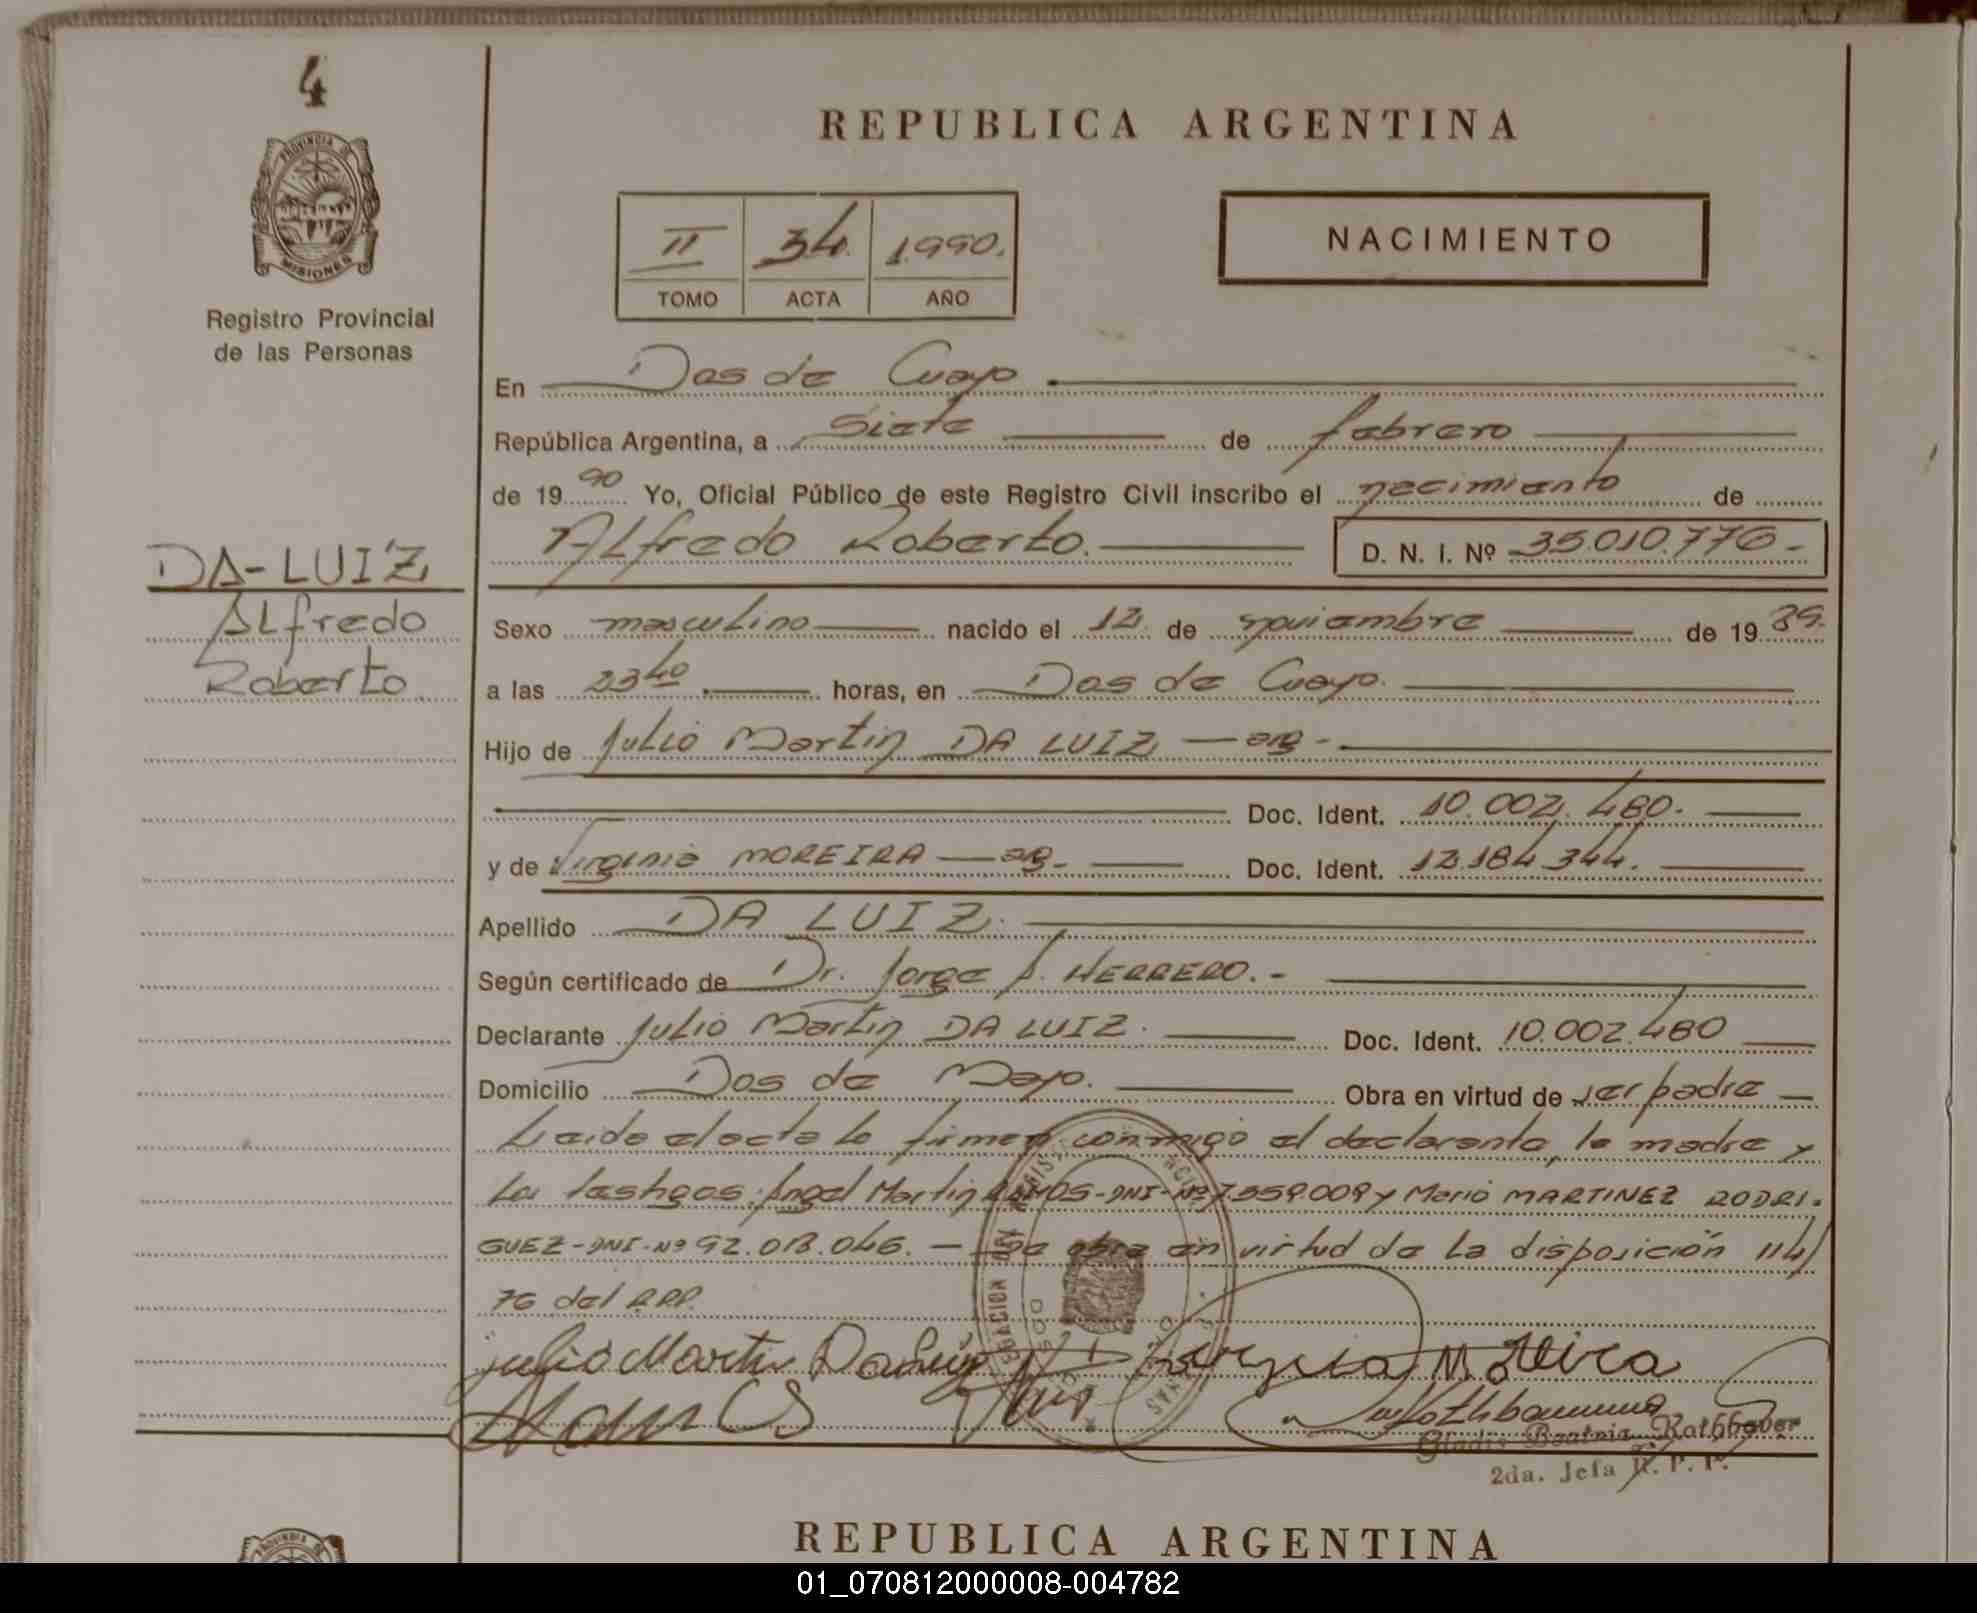 4
REPUBLICA ARGENTINA
PROVINCIA DE
MISIONES
II 34. 1.990.
TOMO ACTA AÑO
NACIMIENTO
Registro Provincial
de las Personas
En Dos de Mayo
República Argentina, a siete de febrero
de 1990 Yo, Oficial Público de este Registro Civil inscribo el nacimiento de
Alfredo Roberto. D. N. I. Nº 35.010.776-
DA-LUIZ
Alfredo
Roberto
Sexo masculino nacido el 12 de noviembre de 1989.
a las 23 40 horas, en Dos de Mayo.
Hijo de Julio Martin DA LUIZ — arg-
Doc. Ident. 10.002.480.
y de Virginia MOREIRA — arg- Doc. Ident. 12.184.344.
Apellido DA LUIZ.
Según certificado de Dr. Jorge A. HERRERO.-
Declarante Julio Martin DA LUIZ. Doc. Ident. 10.002.480
Domicilio Dos de Mayo. Obra en virtud de ser padre —
Leida el acta lo firman conmigo el declarante, la madre y
los testigos: Angel Martin RAMOS-DNI-Nº 7.559.009 y Mario MARTINEZ RODRI-
GUEZ-DNI-Nº 92.013.046. — Se obra en virtud de la disposición 114/
76 del R.P.P.
Julio Martin Da Luiz Virginia Moreira
Gladis Beatriz
2da. Jefa R. P. P.
REPUBLICA ARGENTINA
01_070812000008-004782